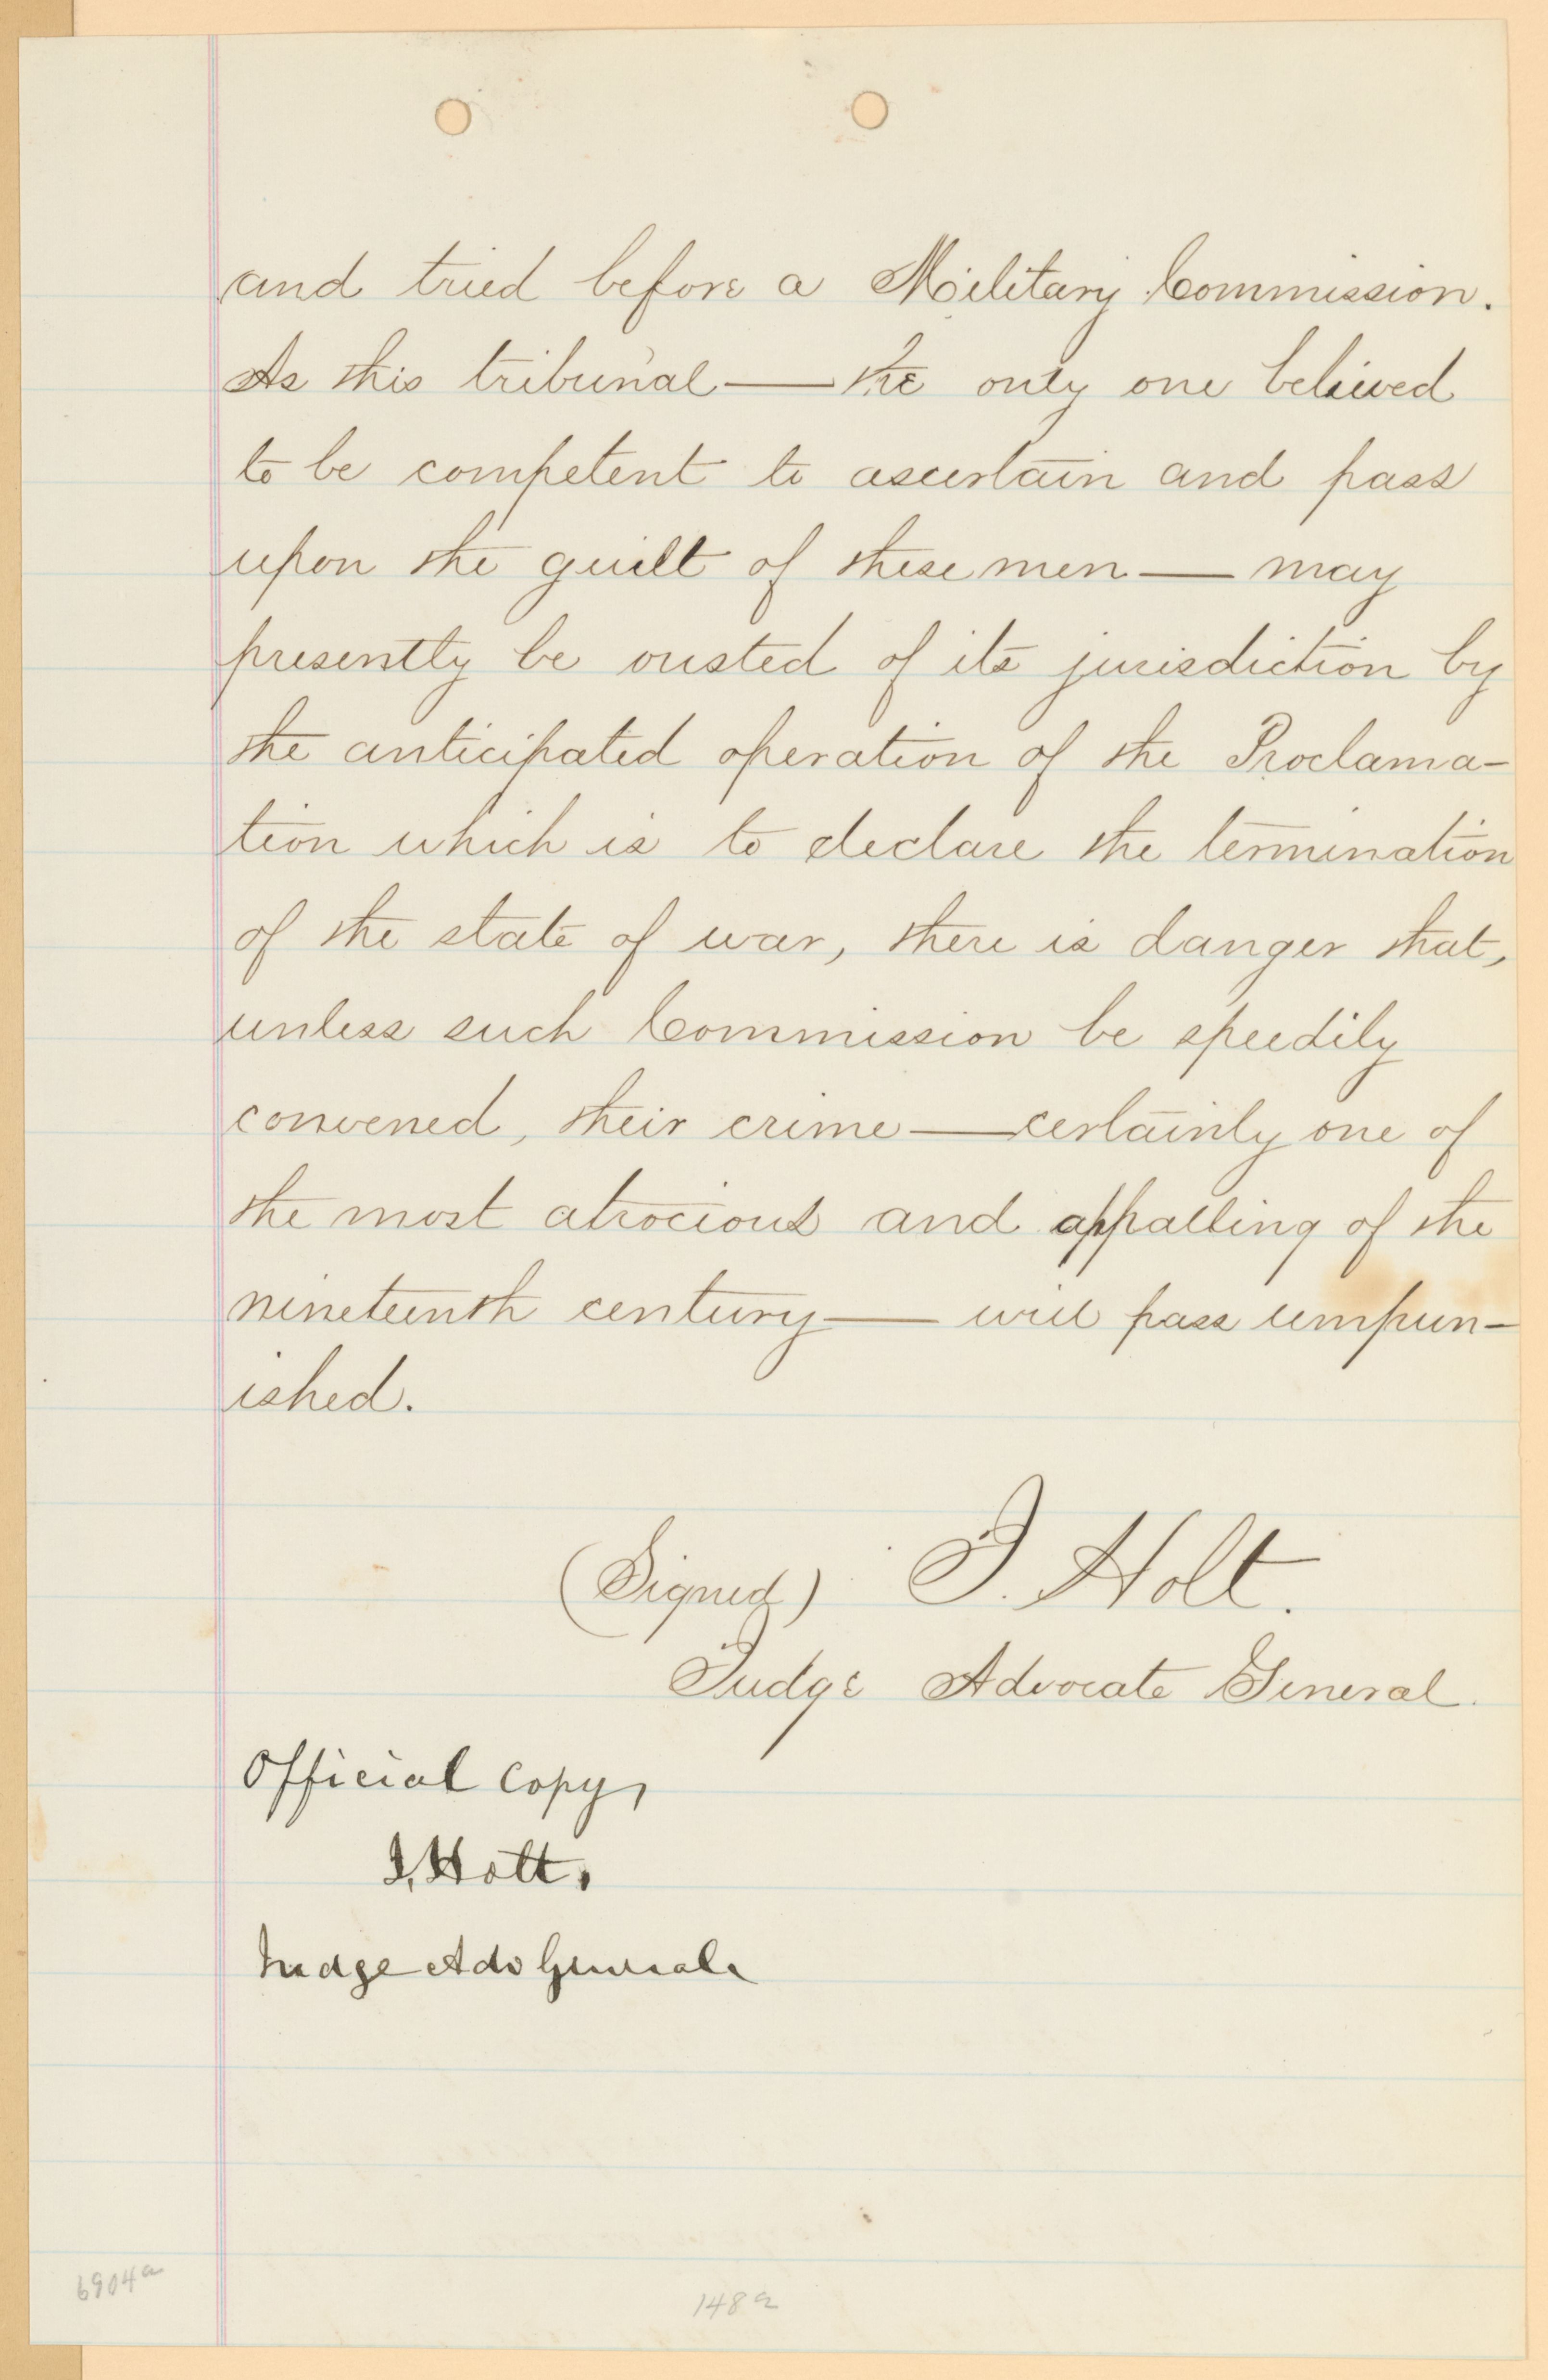 and tried before a Military Commission.
As this tribunal — the only one believed
to be competent to ascertain and pass
upon the guilt of these men — may
presently be ousted of its jurisdiction by
the anticipated operation of the Proclama-
tion which is to declare the termination
of the state of war, there is danger that,
unless such Commission be speedily
convened, their crime — certainly one of
the most atrocious and appalling of the
nineteenth century — will pass unpun-
ished.
(Signed) J. Holt.
Judge Advocate General.
Official copy,
J. Holt,
Judge Adv General
6904a
148a